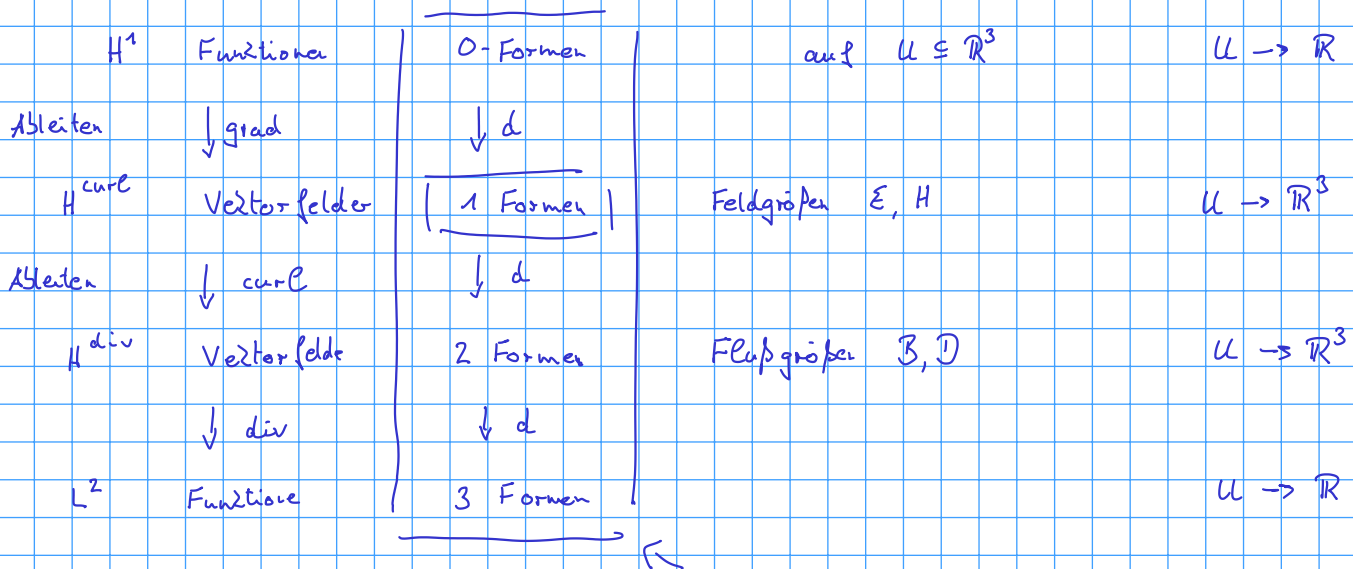 H^1 Funktionen 0-Formen auf U ⊆ ℝ^3 U → ℝ
Ableiten ↓ grad ↓ d
H^curl Vektorfelder 1 Formen Feldgrößen E, H U → ℝ^3
Ableiten ↓ curl ↓ d
H^div Vektorfelde 2 Formen Flußgrößen B, D U → ℝ^3
↓ div ↓ d
L^2 Funktione 3 Formen U → ℝ